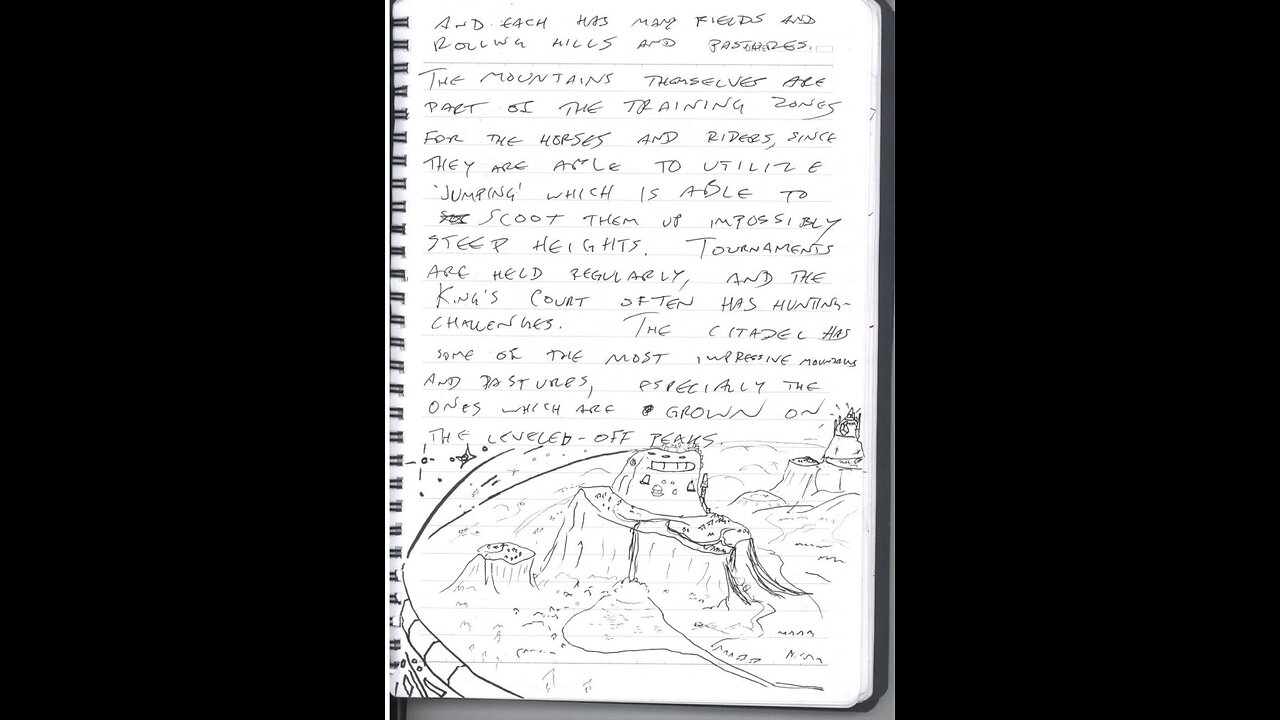 AND EACH HAS MANY FIELDS AND
ROLLING HILLS AND PASTURES.
THE MOUNTAINS THEMSELVES ARE
PART OF THE TRAINING ZONES
FOR THE HORSES AND RIDERS, SINCE
THEY ARE ABLE TO UTILIZE
'JUMPING' WHICH IS ABLE TO
SCOOT THEM UP IMPOSSIBLY
STEEP HEIGHTS. TOURNAMENTS
ARE HELD REGULARLY, AND THE
KING'S COURT OFTEN HAS HUNTING-
CHALLENGES. THE CITADEL HAS
SOME OF THE MOST IMPRESSIVE MOUNTAINS
AND PASTURES, ESPECIALLY THE
ONES WHICH ARE GROWN ON
THE LEVELED-OFF PEAKS.